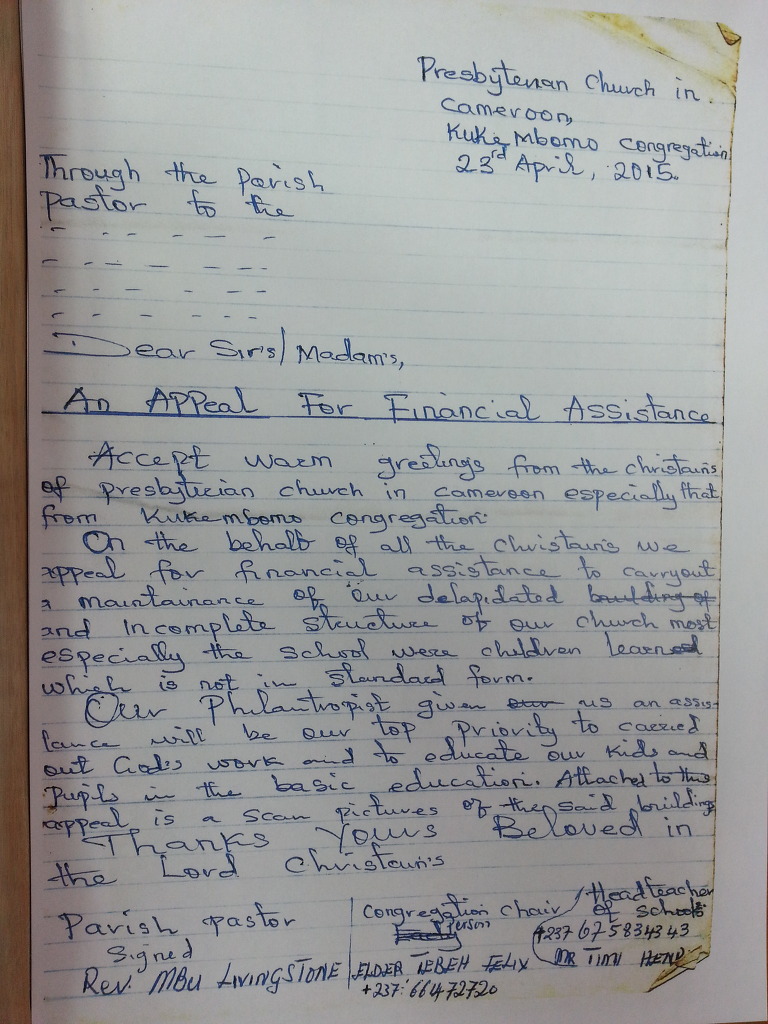 Presbyterian Church in
Cameroon,
Kuke Mbomo congregation
23rd April, 2015.
Through the Parish
Pastor to the
- - - - -
- - - - - -
- - - - - -
- - - - - -
Dear Sir's/Madam's,
An Appeal For Financial Assistance
Accept warm greetings from the christains
of presbyterian church in cameroon especially that
from Kukembomo congregation.
On the behalf of all the christains we
appeal for financial assistance to carryout
a maintainance of our delapidated building of
and Incomplete structure of our church most
especially the school were children learned
which is not in standard form.
Our Philantropist given our us an assis-
tance will be our top priority to carried
out God's work and to educate our Kids and
Pupils in the basic education. Attached to this
appeal is a scan pictures of the said buildings
Thanks Yours Beloved in
the Lord Christain's
Parish pastor
Signed
Rev. MBU LIVINGSTONE
Congregation Chair
Person
ELDER TEBEH FELIX
+237: 66472720
Headteacher
of schools
+237 675834343
MR TIMI